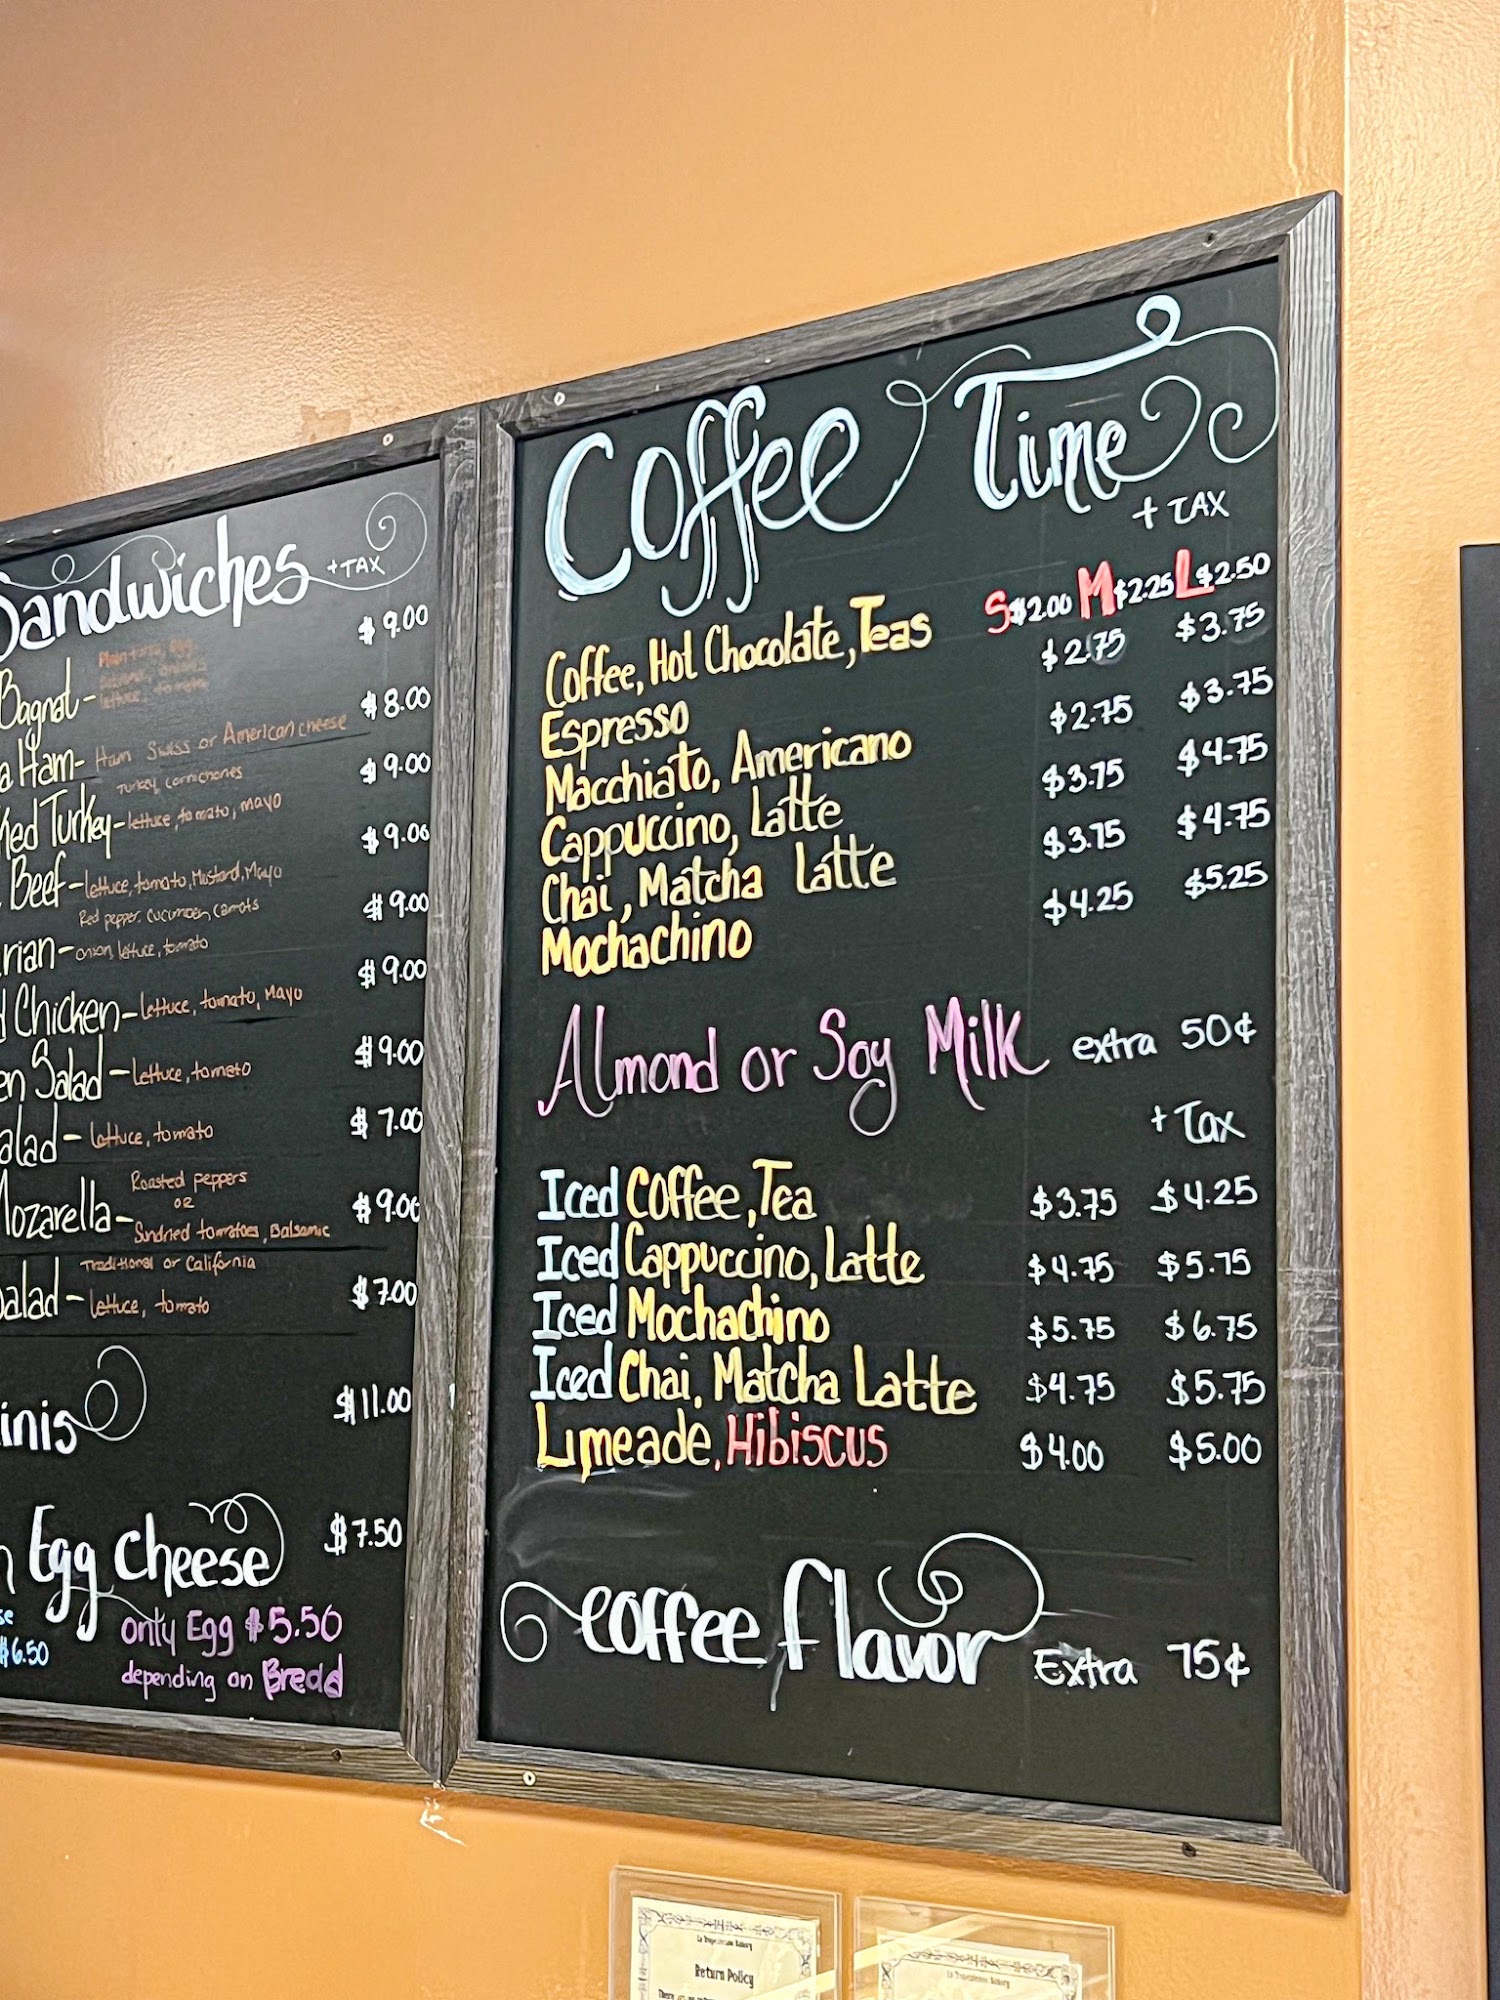 Sandwiches + TAX
Bagnat - $9.00
Ham - Ham Swiss or American cheese $8.00
Turkey, cornichones
Turkey - lettuce, tomato, mayo $9.00
Beef - lettuce, tomato, Mustard, Mayo $9.00
Red pepper, cucumber, carrots
rian - onion, lettuce, tomato $9.00
Chicken - lettuce, tomato, Mayo $9.00
en Salad - lettuce, tomato $9.00
alad - lettuce, tomato $7.00
Roasted peppers
or
Mozarella - Sundried tomatoes, Balsamic $9.00
Traditional or California
Salad - lettuce, tomato $7.00
inis $11.00
Egg cheese $7.50
only Egg $5.50
$6.50
depending on Bread
Coffee Time
+ TAX
Coffee, Hot Chocolate, Teas S $2.00 M $2.25 L $2.50
Espresso $2.75 $3.75
Macchiato, Americano $2.75 $3.75
Cappuccino, Latte $3.75 $4.75
Chai, Matcha Latte $3.75 $4.75
Mochachino $4.25 $5.25
Almond or Soy Milk extra 50¢
+ Tax
Iced Coffee, Tea $3.75 $4.25
Iced Cappuccino, Latte $4.75 $5.75
Iced Mochachino $5.75 $6.75
Iced Chai, Matcha Latte $4.75 $5.75
Limeade, Hibiscus $4.00 $5.00
coffee flavor Extra 75¢
Return Policy